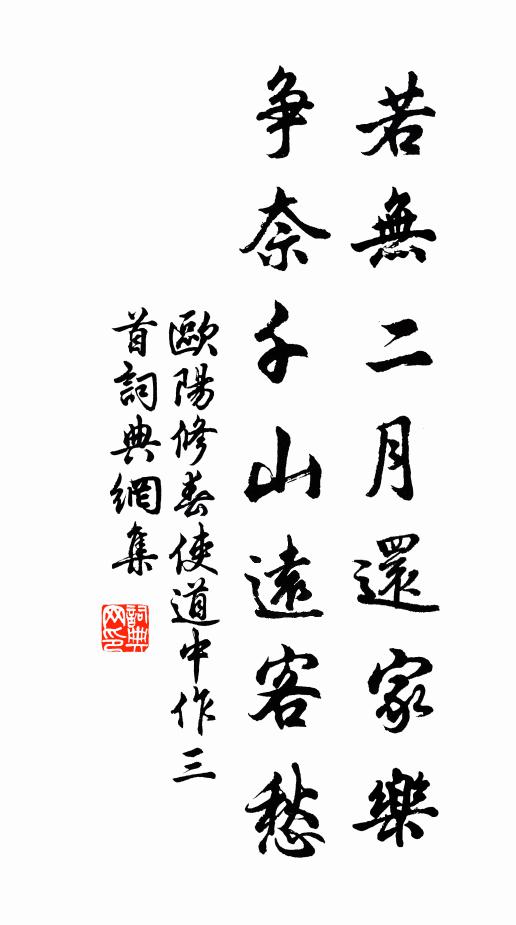 若無二月還家樂
争奈千山遠客愁
歐陽修春使道中作三
首詞典網集
詞典
网印